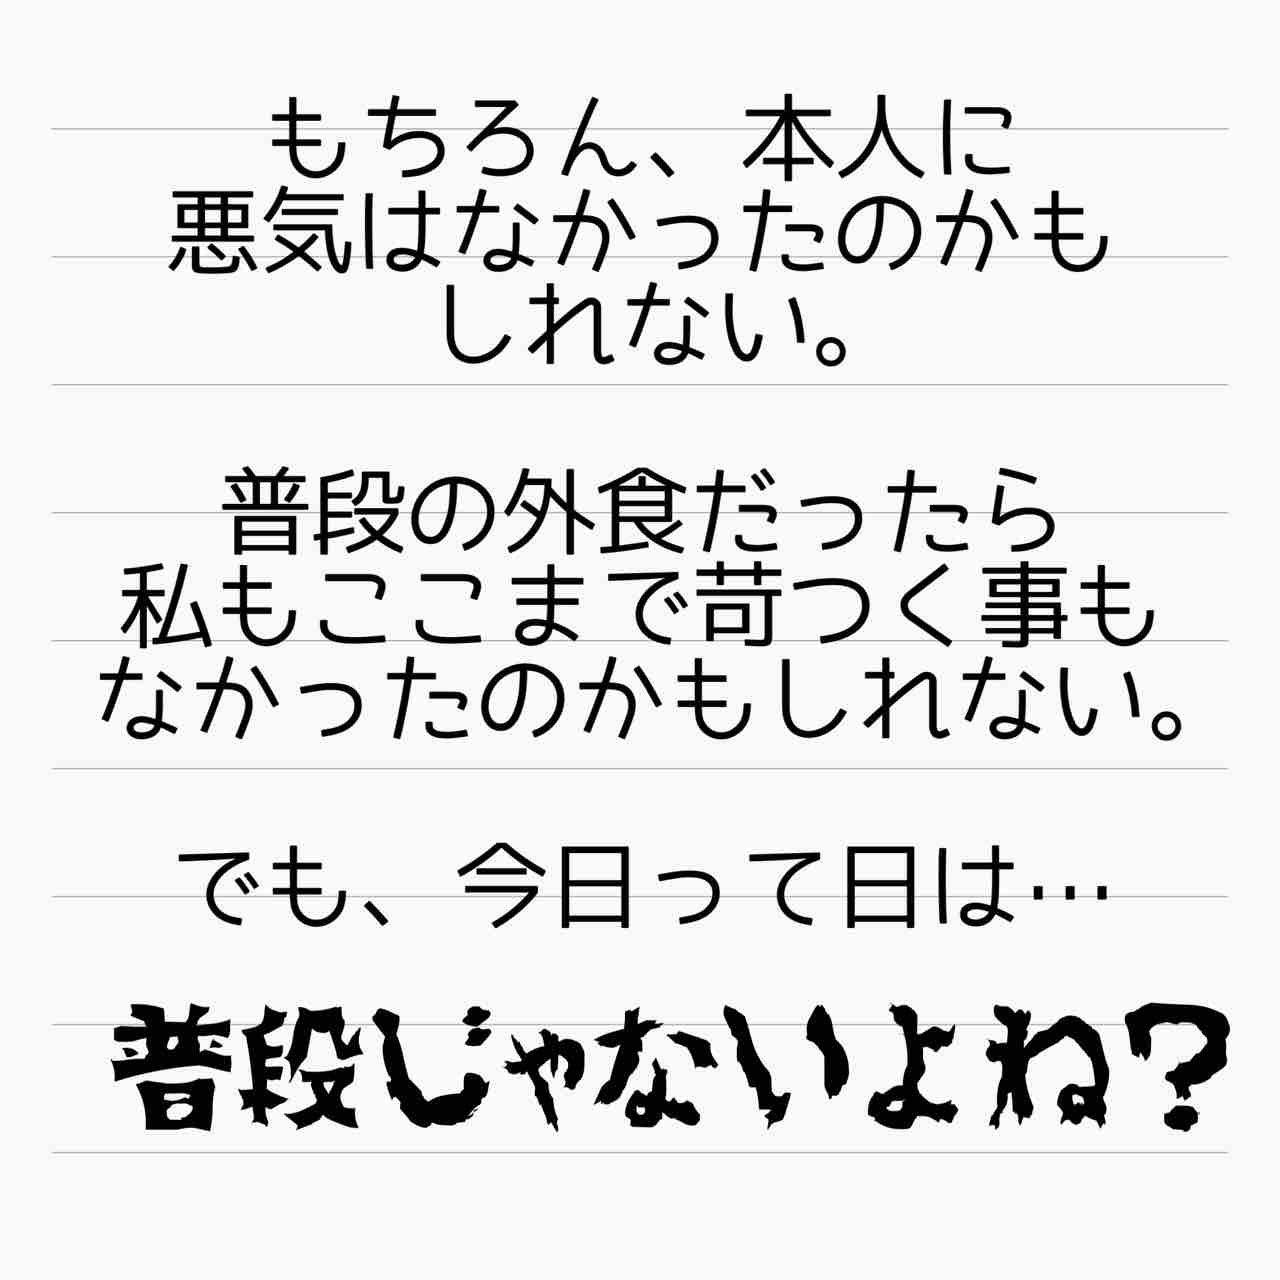 もちろん、本人に
悪気はなかったのかも
しれない。
普段の外食だったら
私もここまで苛つく事も
なかったのかもしれない。
でも、今日って日は…
普段じゃないよね？